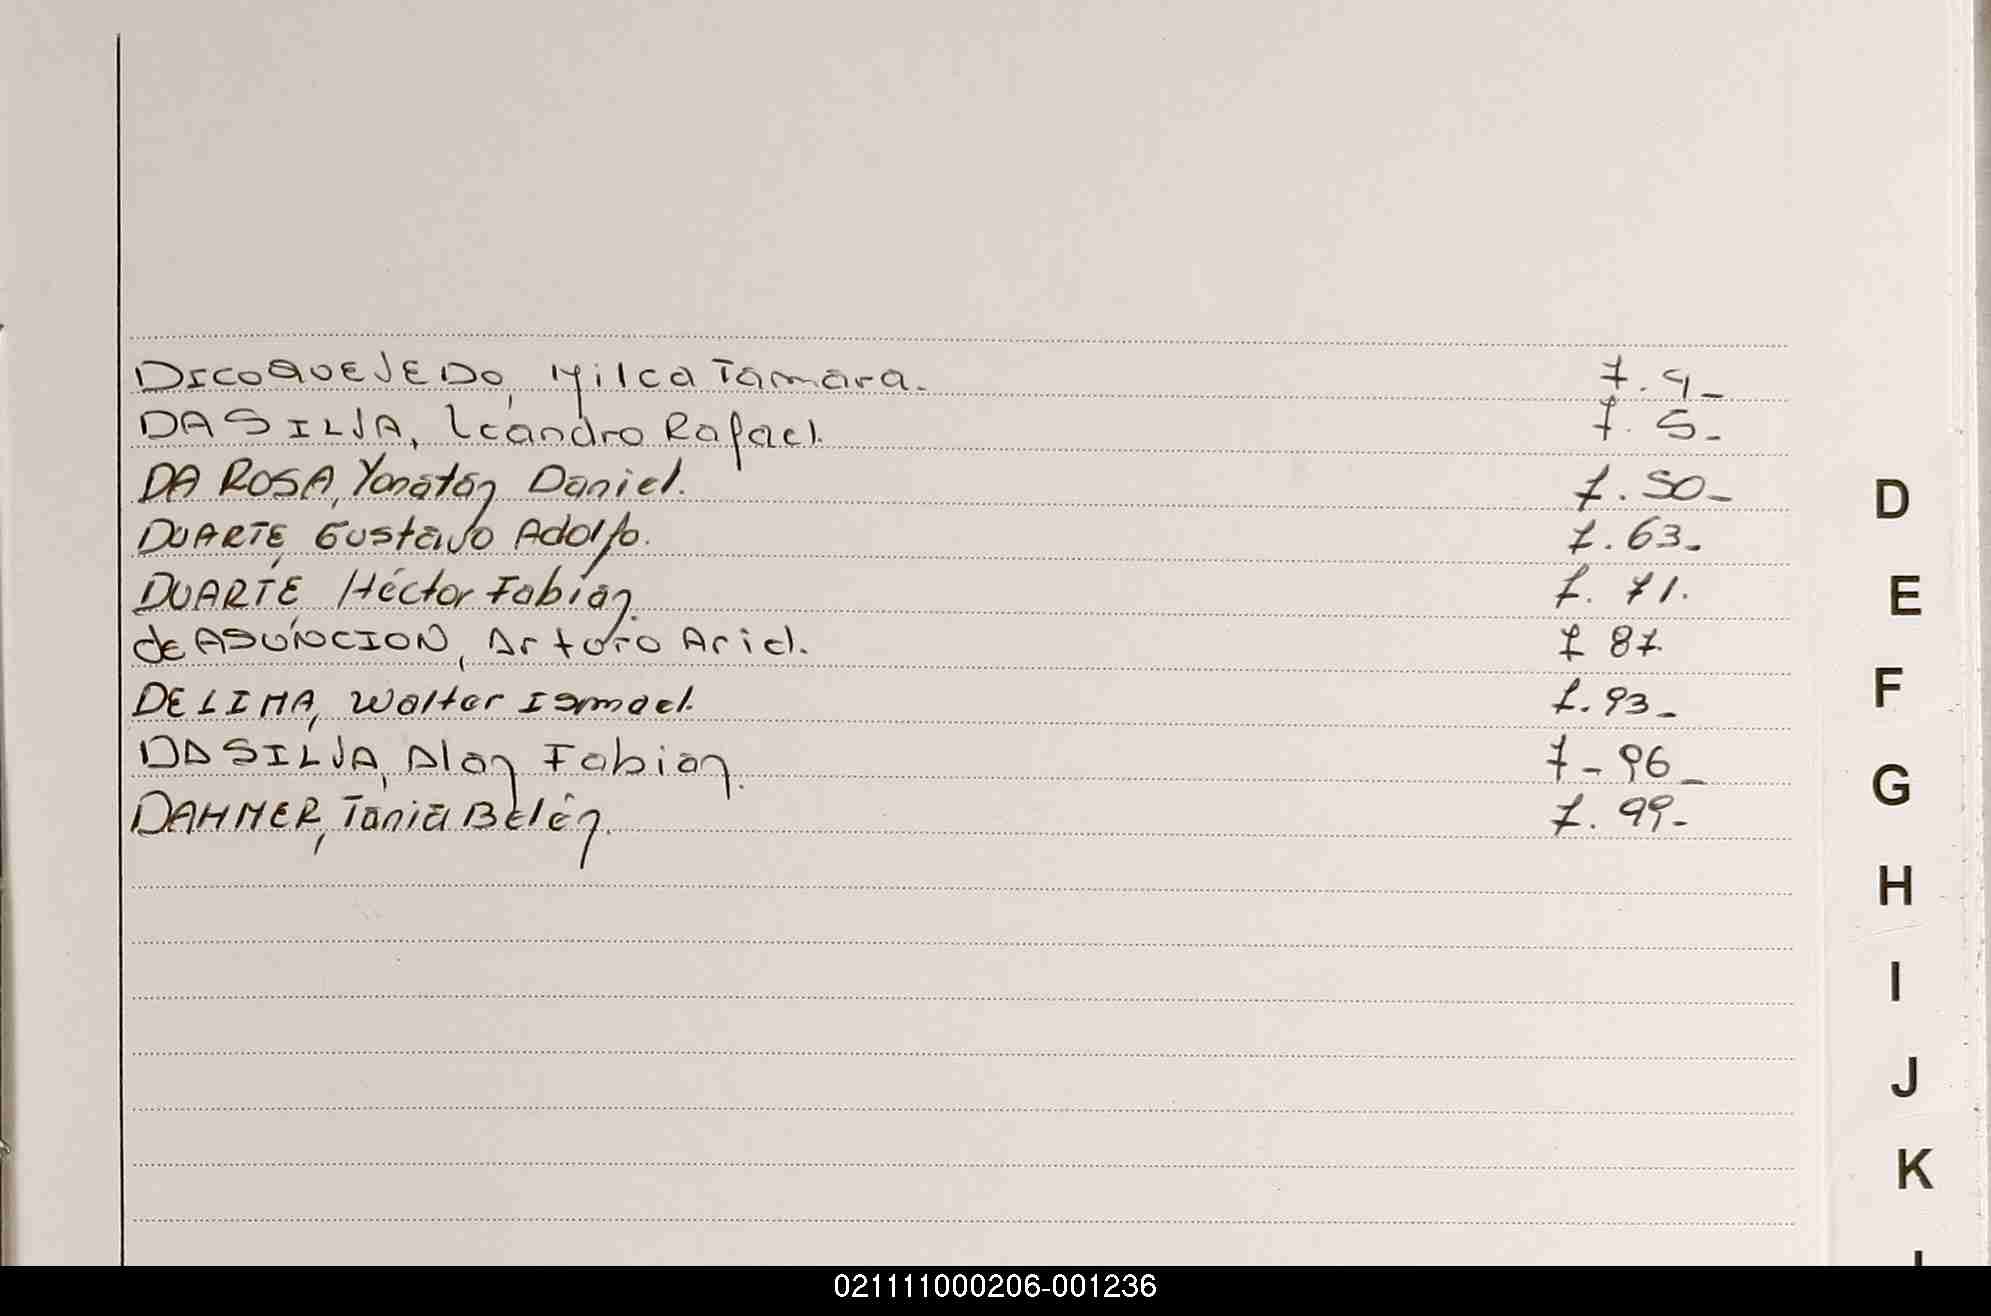 DICOQUEJEDO, Milca Tamara. F. 4_
DA SILVA, Leandro Rafael. F. 5_
DA ROSA, Yonatán Daniel. F. 50_
DUARTE, Gustavo Adolfo. F. 63_
DUARTE, Héctor Fabián. F. 71.
de ASUNCION, Arturo Ariel. F 87.
DE LIMA, Walter Ismael. F. 93_
DA SILVA, Alan Fabian. F - 96_
DAHMER, Tania Belén. F. 99_
D
E
F
G
H
I
J
K
021111000206-001236